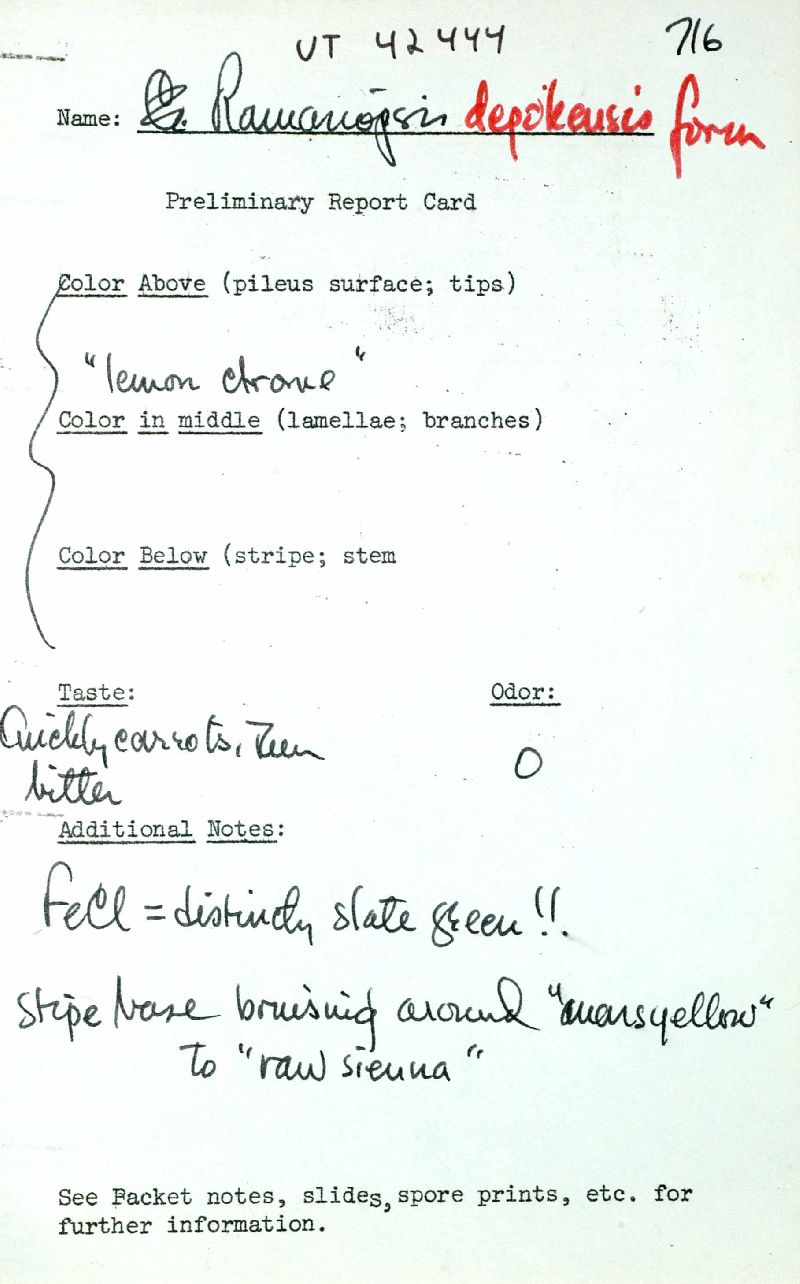 UT 42444 716
Name: Ramariopsis depokensis form
Preliminary Report Card
Color Above (pileus surface; tips)
"lemon chrome"
Color in middle (lamellae; branches)
Color Below (stripe; stem
Taste: Odor:
Quickly carrots, then O
bitter
Additional Notes:
FeCl = distinctly slate green!!.
Stipe base bruising around "mars yellow"
to "raw sienna"
See Packet notes, slides, spore prints, etc. for
further information.